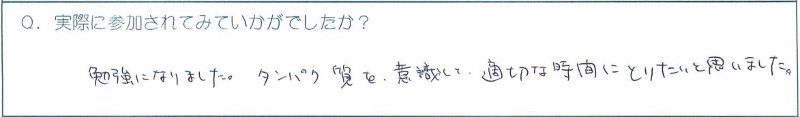 Q. 実際に参加されてみていかがでしたか？
勉強になりました。タンパク質を、意識して、適切な時間にとりたいと思いました。